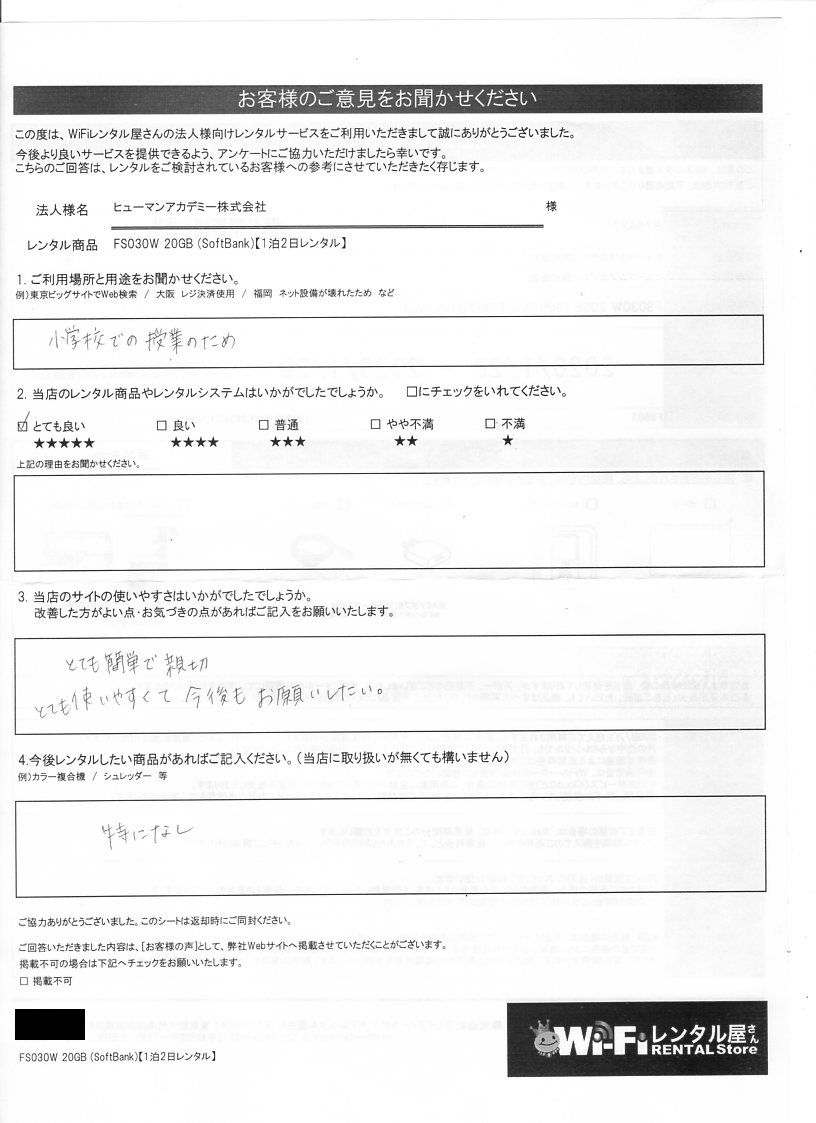 お客様のご意見をお聞かせください
この度は、WiFiレンタル屋さんの法人様向けレンタルサービスをご利用いただきまして誠にありがとうございました。
今後より良いサービスを提供できるよう、アンケートにご協力いただけましたら幸いです。
こちらのご回答は、レンタルをご検討されているお客様への参考にさせていただきたく存じます。
法人様名 ヒューマンアカデミー株式会社 様
レンタル商品 FS030W 20GB (SoftBank)【1泊2日レンタル】
1. ご利用場所と用途をお聞かせください。
例)東京ビッグサイトでWeb検索 / 大阪 レジ決済使用 / 福岡 ネット設備が壊れたため など
小学校での授業のため
2. 当店のレンタル商品やレンタルシステムはいかがでしたでしょうか。 □にチェックをいれてください。
☑ とても良い □ 良い □ 普通 □ やや不満 □ 不満
★★★★★ ★★★★ ★★★ ★★ ★
上記の理由をお聞かせください。
3. 当店のサイトの使いやすさはいかがでしたでしょうか。
改善した方がよい点・お気づきの点があればご記入をお願いいたします。
とても簡単で親切
とても使いやすくて今後もお願いしたい。
4.今後レンタルしたい商品があればご記入ください。(当店に取り扱いが無くても構いません)
例)カラー複合機 / シュレッダー 等
特になし
ご協力ありがとうございました。このシートは返却時にご同封ください。
ご回答いただきました内容は、[お客様の声]として、弊社Webサイトへ掲載させていただくことがございます。
掲載不可の場合は下記へチェックをお願いいたします。
□ 掲載不可
Wi-Fiレンタル屋さん
RENTAL Store
FS030W 20GB (SoftBank)【1泊2日レンタル】